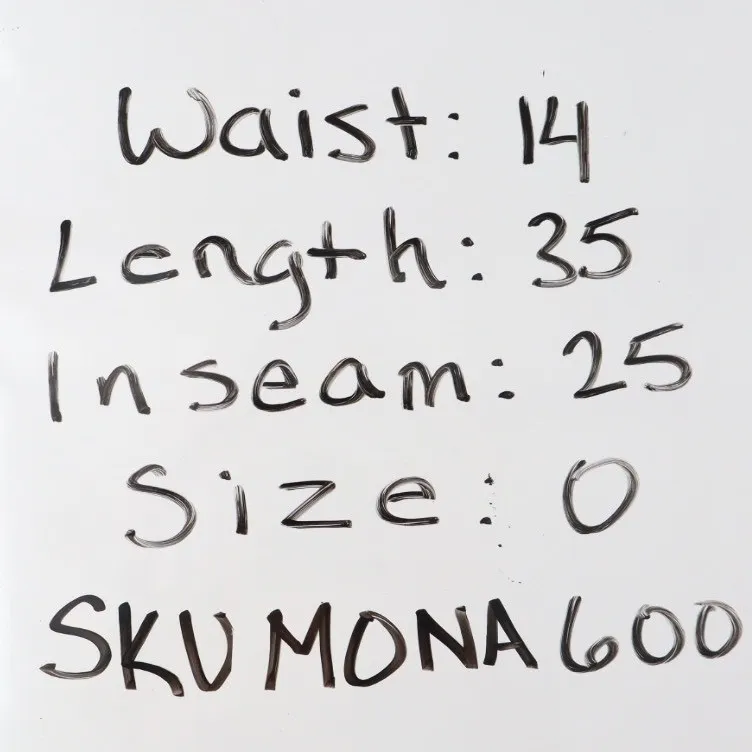 Waist: 14
Length: 35
Inseam: 25
Size: 0
SKU MONA 600